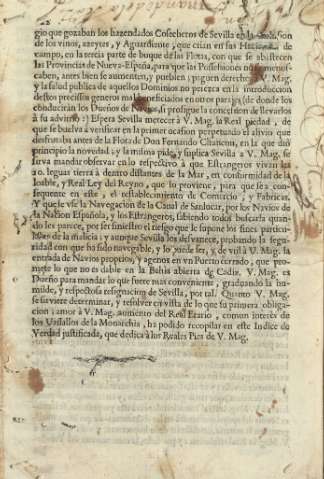 gio que gozaban los hazendados Cosecheros de Sevilla en la
de los vinos, azeytes, y Aguardiente, que crian en sus
de campo, en la tercia parte de buque de las Flotas, con que se abastecen
las Provincias de Nueva-España, para que las Possessiones
caben, antes bien se aumenten, y pueblen; piguen derechos à V. Mag.
y la salud publica de aquellos Dominios no perezca en la introduccion
destos precisos generos mal beneficiados en otros parages (de donde los
conducirán los Dueños de Navios, si prosigue la concession de llevarlos
à su advitrio:) Espera Sevilla merecer à V. Mag. la Real piedad, de
que se buelva à verificar en la primer ocasion perpetuando el alivio que
desfrutaba antes de la Flota de Don Fernando Chacon, en la que diò
principio la novedad: y la misma pide, y suplica Sevilla à V. Mag. se
sirva mandar observar en lo respectivo à que Estrangeros vivan las
20. leguas tierra à dentro distantes de la Mar, en conformidad de la
Inoble, y Real Ley del Reyno, que lo proviene, para que se à con-
sequente en este, el restablecimiento de Comercio, y Fabricas,
Y que le vie la Navegacion de la Canal de Sanlucar, por los Navios de
la Nacion Española, y los Estrangeros, sabiendo todos buscarla quan-
do les parece, por ser siniestro el riesgo que le supone los fines particu-
lares de la malicia: y aunque Sevilla los desvanece, probando la segu-
ridad con que ha sido navegable, y lo puede ser, y de vil à V. Mag. la
entrada de Navios proprios, y agenos en vn Puerto cerrado, que pro-
mete lo que no es dable en la Bahia abierta de Cadiz. V. Mag. es
Dueño para mandar lo que fuere mas conveniente, graduando la hu-
milde, y respectosa resignacion de Sevilla, por tal. Quanto V. Mag.
se sirviere determinar, y resolver en vista de lo que su primera obliga-
cion: amor à V. Mag. aumento del Real Erario, comun interès de
los Vassallos de la Monarchia, ha podido recopilar en este Indice de
Verdad justificada, que dedica à los Reales Pies de V. Mag.